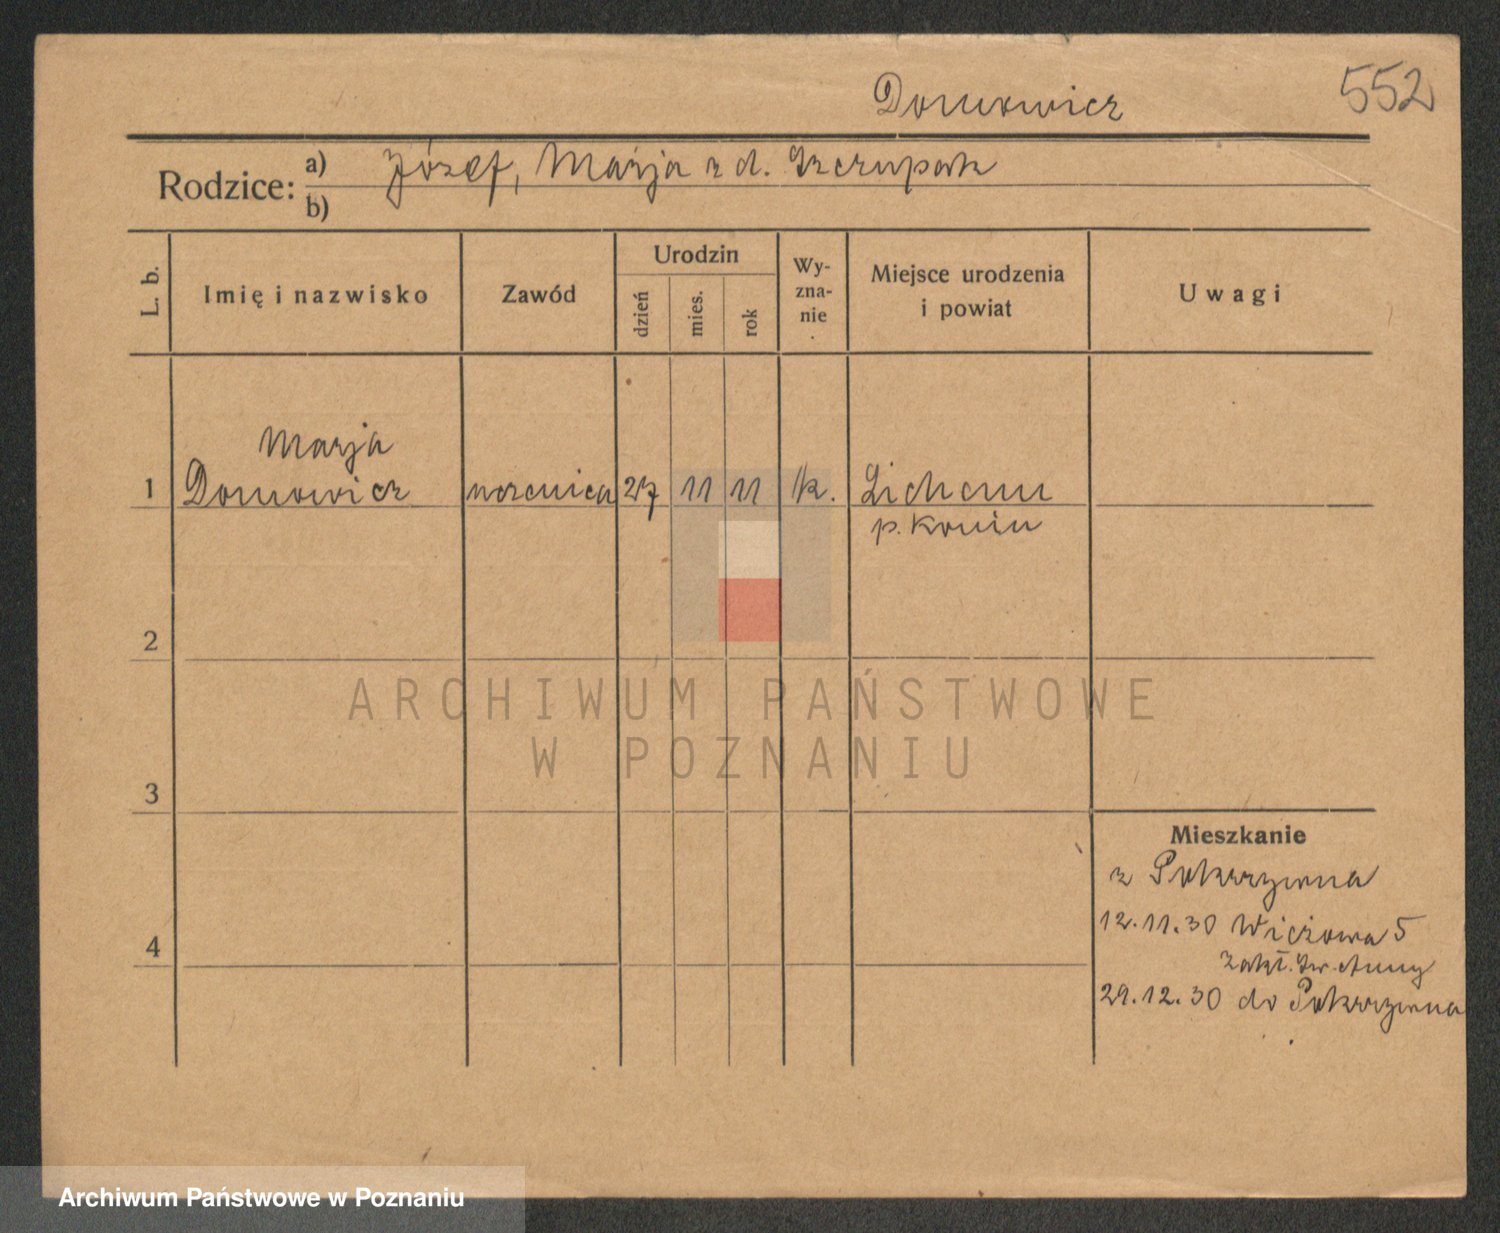 552
Domowicz
Rodzice: a) Józef, Marja z d. Szczupak
b)
L. b.
Imię i nazwisko
Zawód
Urodzin
dzień
mies.
rok
Wy-
zna-
nie
Miejsce urodzenia
i powiat
Uwagi
Marja
1 Domowicz uczenica 27 11 11 rk. Lichenn
p. Konin
2
3
4
Mieszkanie
z Pokrzywna
12.11.30 Wieżowa 5
zakł. Św. Anny
29.12.30 do Pokrzywna
ARCHIWUM PAŃSTWOWE
W POZNANIU
Archiwum Państwowe w Poznaniu